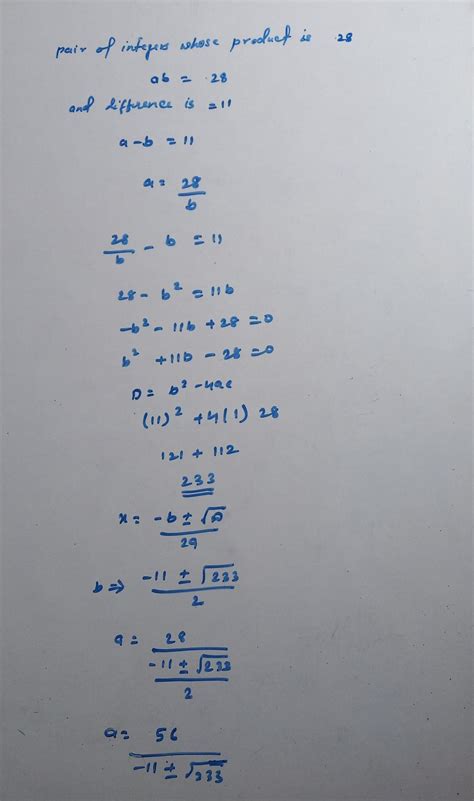 pair of integers whose product is 28
ab = 28
and difference is = 11
a - b = 11
a = 28/b
28/b - b = 11
28 - b² = 11b
-b² - 11b + 28 = 0
b² + 11b - 28 = 0
D = b² - 4ac
(11)² + 4(1) 28
121 + 112
233
x = (-b ± √D)/2a
b ⇒ (-11 ± √233)/2
a = 28/((-11 ± √233)/2)
a = 56/(-11 ± √233)